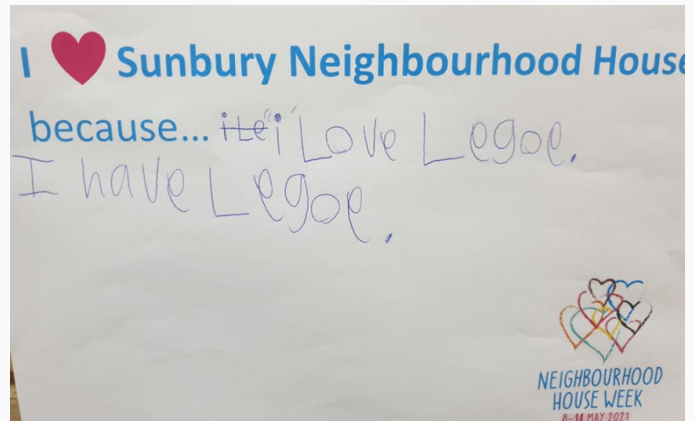 I ❤ Sunbury Neighbourhood House
because... ite i Love Legoe.
I have Legoe.
NEIGHBOURHOOD
HOUSE WEEK
8-14 MAY 2021